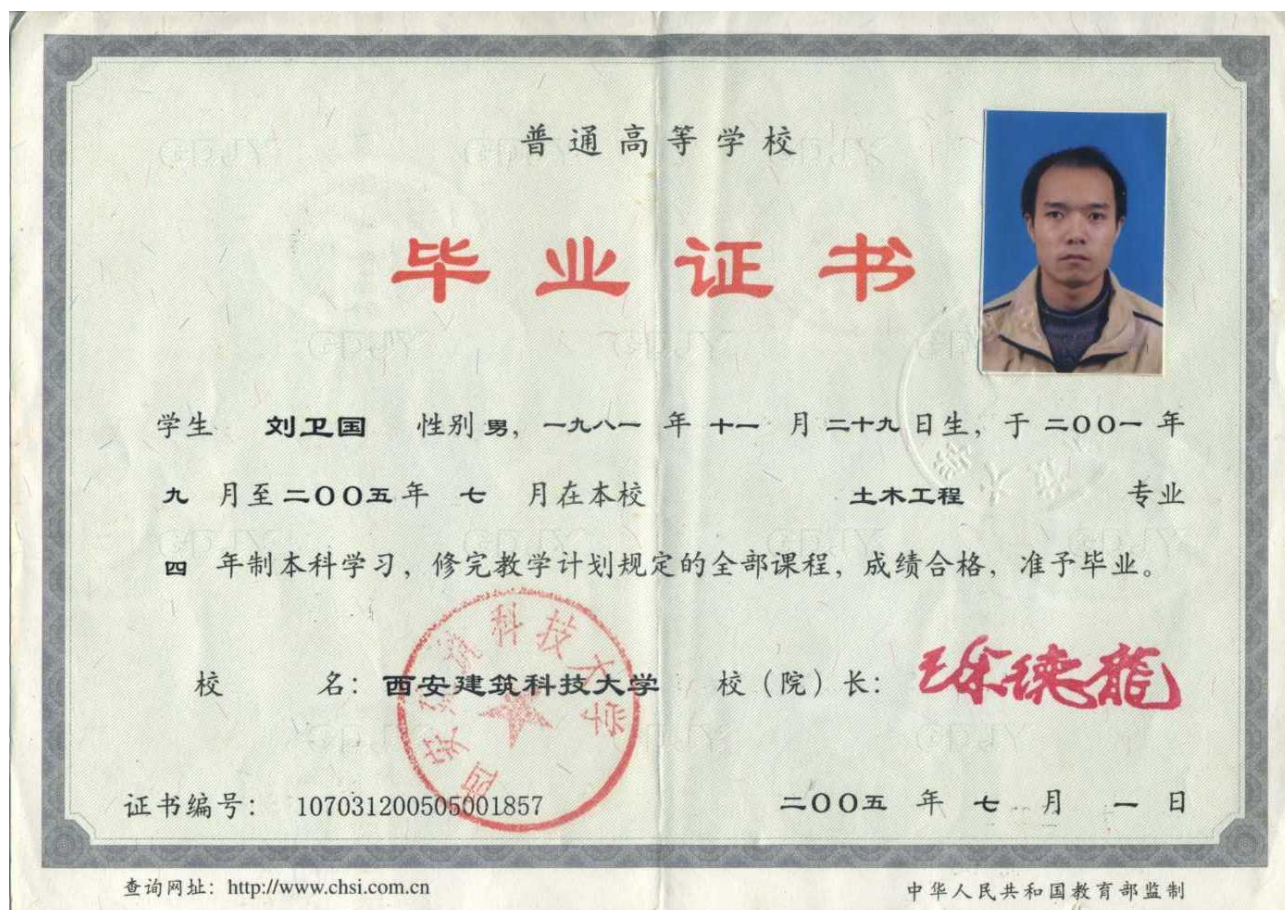 普通高等学校
毕业证书
学生 刘卫国 性别 男, 一九八一 年 十一 月 二十九 日生, 于 二00一 年
九 月至 二00五 年 七 月在本校 土木工程 专业
四 年制本科学习, 修完教学计划规定的全部课程, 成绩合格, 准予毕业。
校 名: 西安建筑科技大学 校（院）长: 徐德龙
西安建筑科技大学
证书编号: 107031200505001857 二00五 年 七 月 一 日
查询网址: http://www.chsi.com.cn 中华人民共和国教育部监制